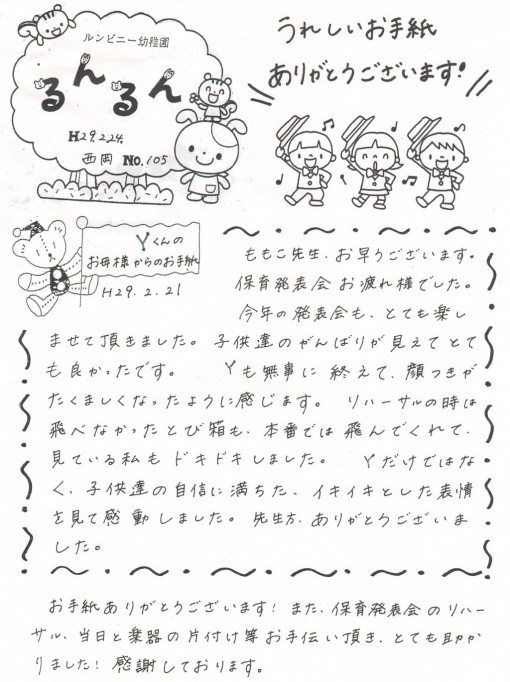 ルンビニー幼稚園
るんるん
H29.2.24.
西岡 No.105
うれしいお手紙
ありがとうございます!
Yくんの
お母様からのお手紙
H29.2.21
ももこ先生、お早うございます。
保育発表会お疲れ様でした。
今年の発表会も、とても楽し
ませて頂きました。子供達のがんばりが見えてとて
も良かったです。 Yも無事に終えて、顔つきが
たくましくなったように感じます。 リハーサルの時は
飛べなかったとび箱も、本番では飛んでくれて、
見ている私もドキドキしました。 Yだけではな
く、子供達の自信に満ちた、イキイキとした表情
を見て感動しました。先生方、ありがとうございま
した。
お手紙ありがとうございます!また、保育発表会のリハー
サル、当日と楽器の片付け等お手伝い頂き、とても助か
りました!感謝しております。